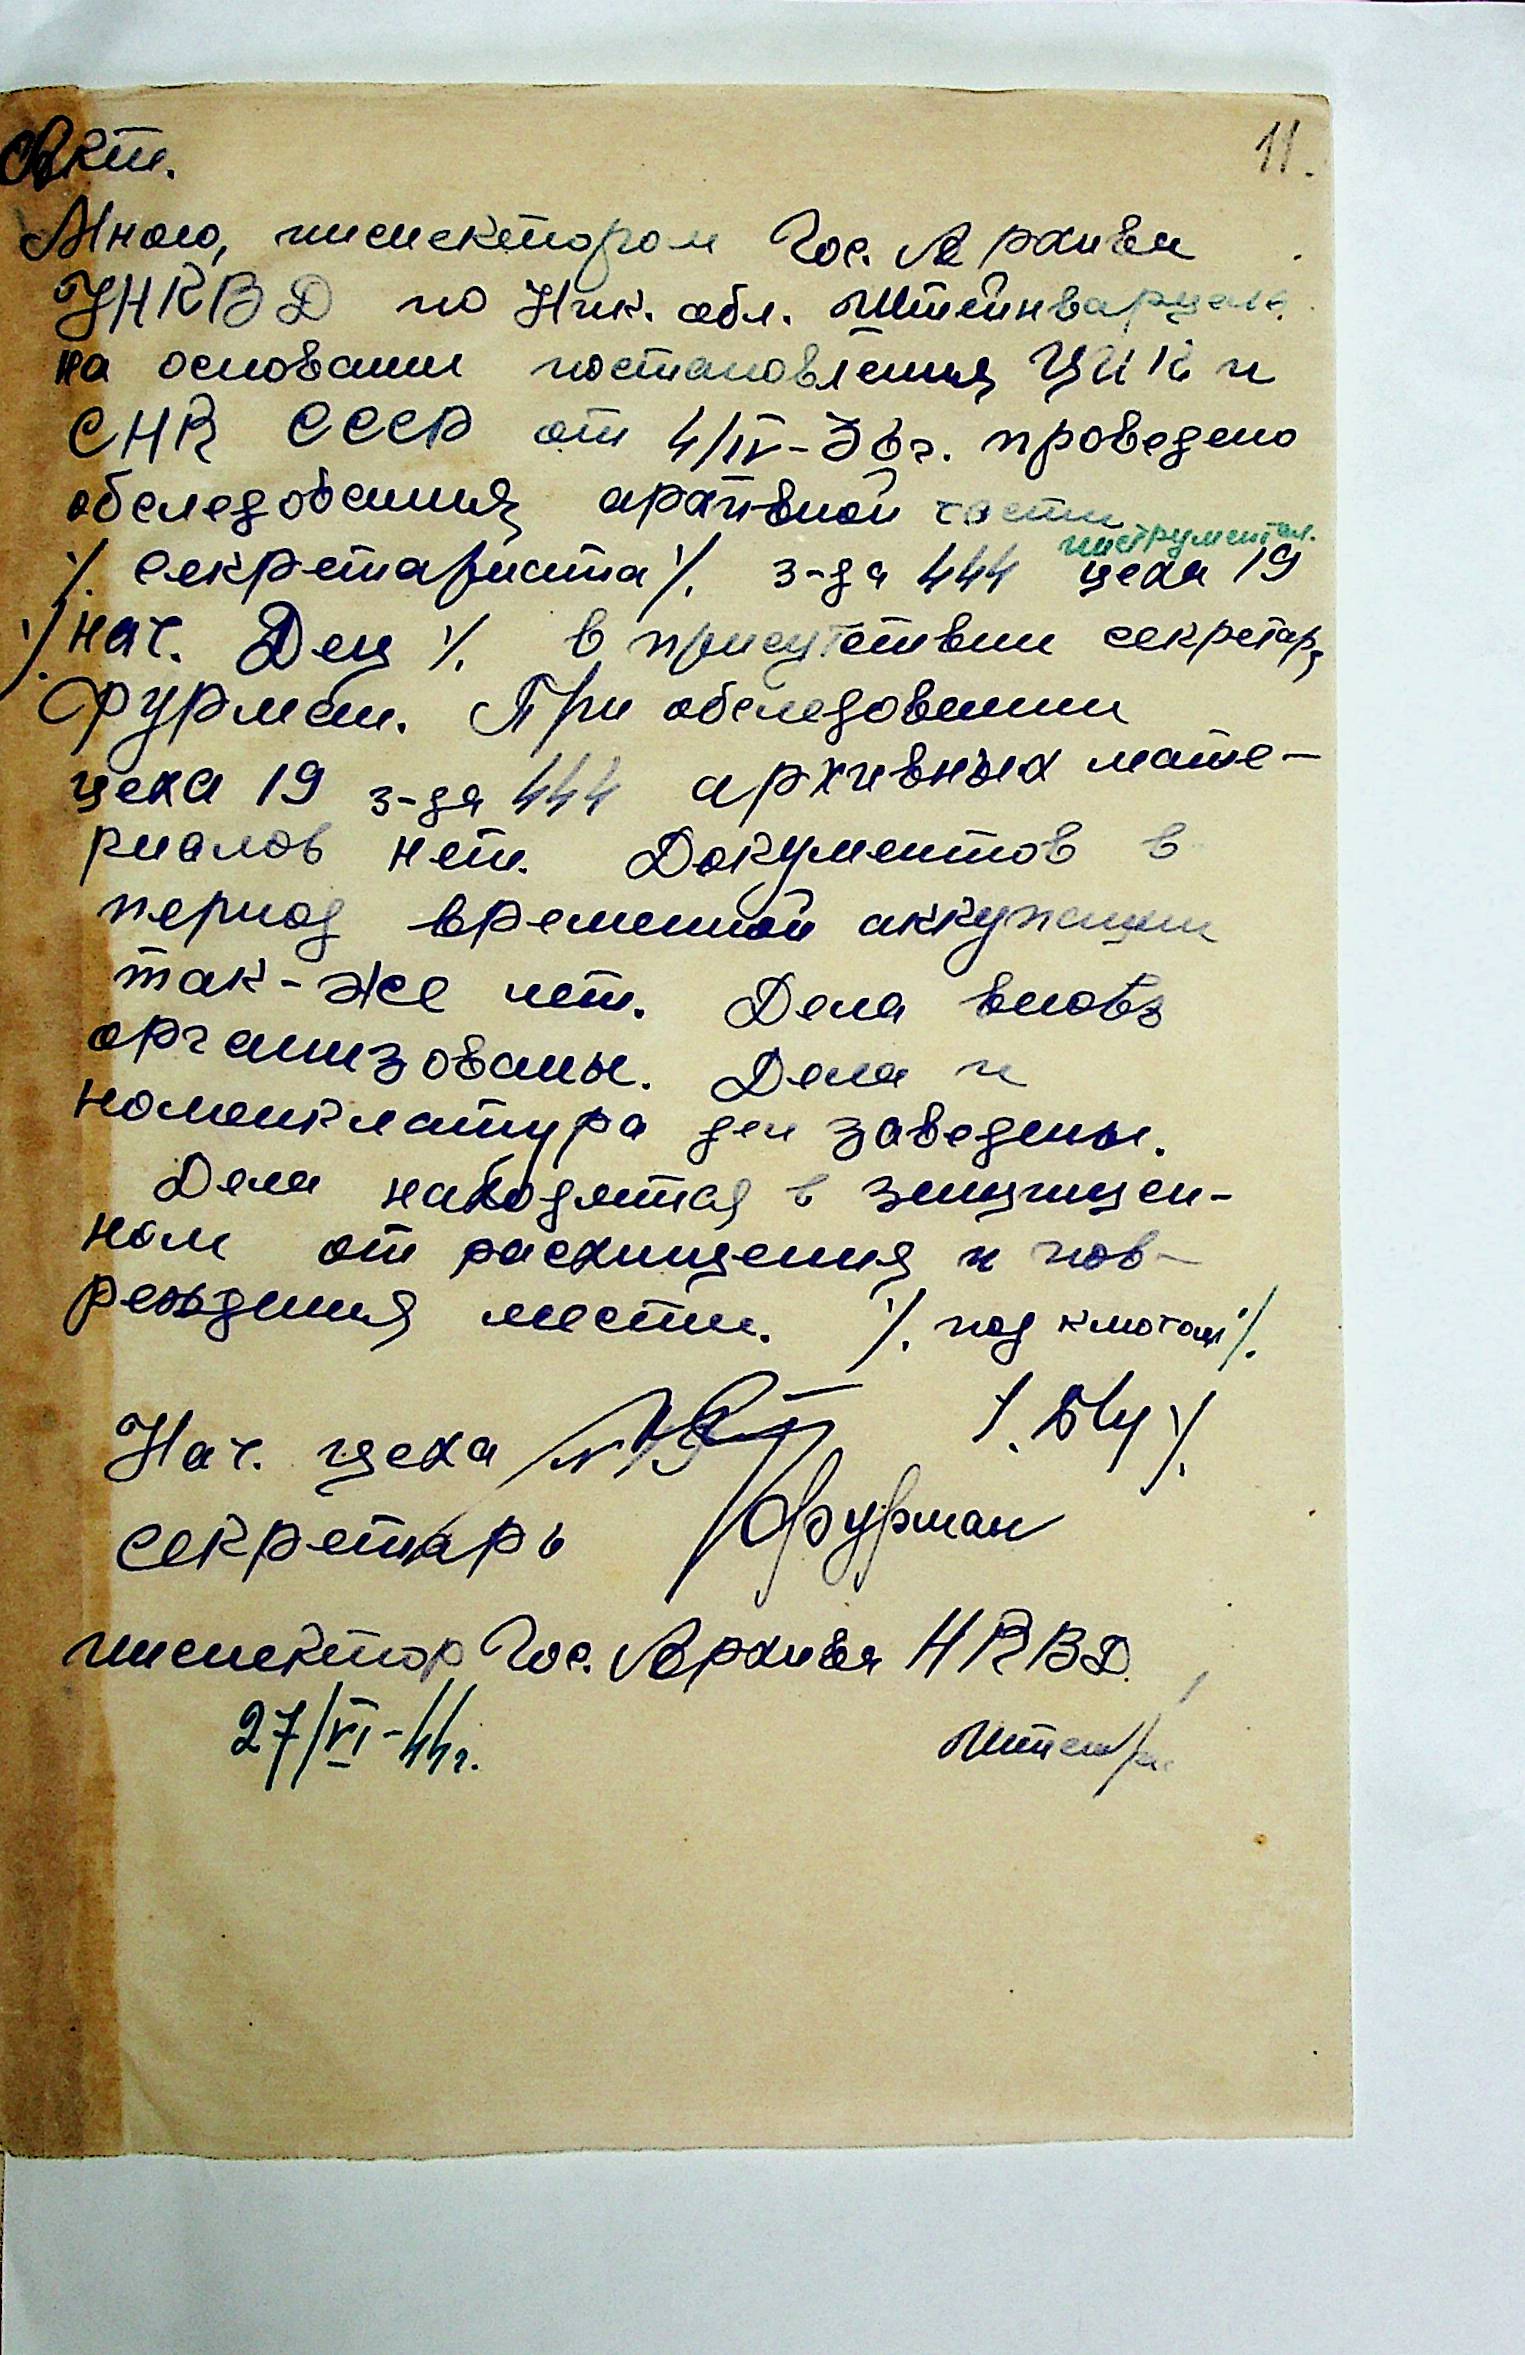 11.
Акт.
Мною, инспектором Гос. Архива
УНКВД по Ник. обл. Штейнварцем
на основании постановления ЦИК и
СНК СССР от 4/IV-36г. проведено
обследования архивной части
инструментал.
/. секретариата /. з-да 444 цеха 19
/. нач. Дец /. в присутствии секретаря
Фурман. При обследовании
цеха 19 з-да 444 архивных мате-
риалов нет. Документов в
период временной аккупации
так-же нет. Дела вновь
организованы. Дела и
номенклатура дел заведены.
Дела находятся в защищен-
ном от расхищения и пов-
реждения месте. /. под ключом /.
Нач. цеха №19
секретарь Фурман
инспектор Гос. Архива НКВД
27/VI-44г.